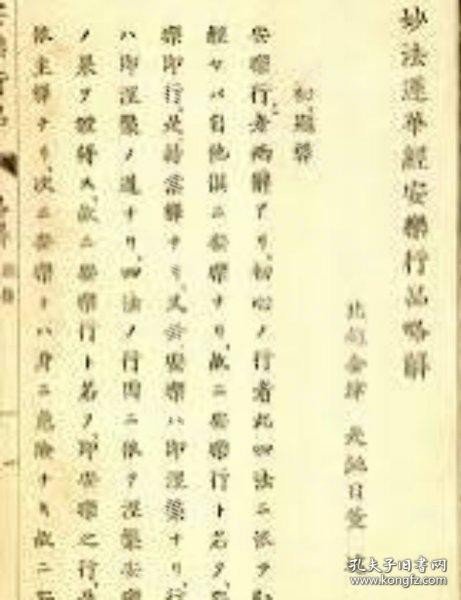 妙法蓮華經安樂行品略解
初題釋
安樂行者兩解アリ、初心ノ行者此四法ニ依テ
經セバ自他俱ニ安樂ナリ、故ニ安樂行ト名ク、
樂即行、是持業釋ナリ、又云、安樂ハ即涅槃ナリ、行
ハ即涅槃ノ道ナリ、四法ノ行因ニ依テ涅槃安樂
ノ果ヲ證得ス、故ニ安樂行ト名ク、即安樂之行、是
依主釋ナリ、次ニ安樂トハ身ニ危險ナキ故ニ安
安樂行品
孔夫子旧书网
www.kongfz.com